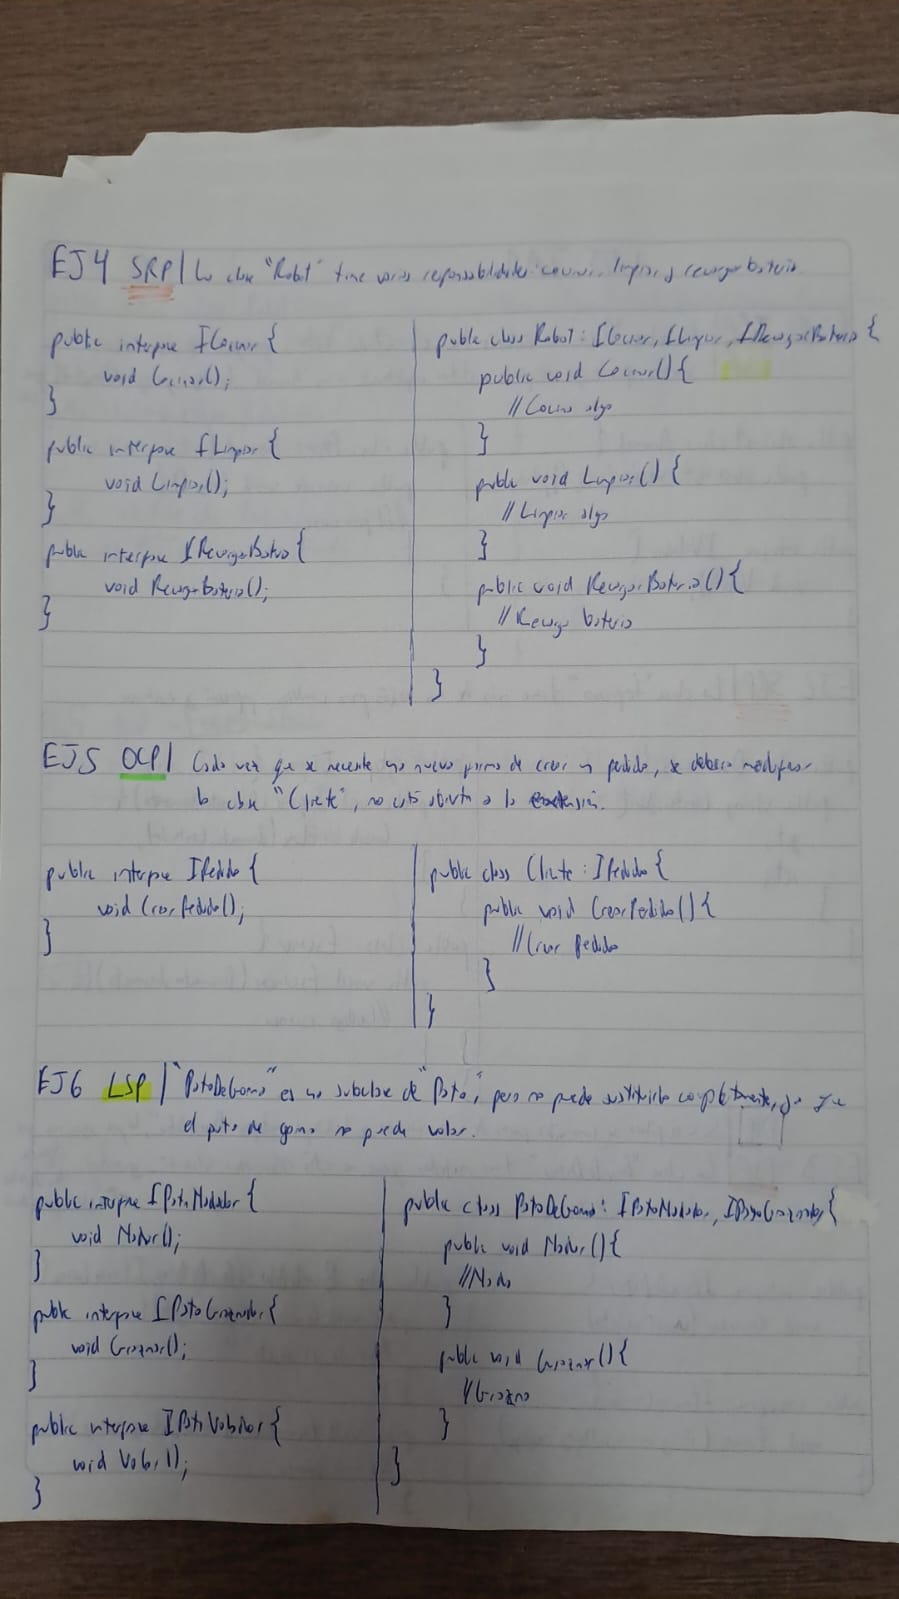 EJ4 SRP | La clase "Robot" tiene varias responsabilidades: cocinar, limpiar y recargar bateria
public interface ICocinar {
void Cocinar();
}
public interface ILimpiar {
void Limpiar();
}
public interface IRecargarBateria {
void RecargarBateria();
}
public class Robot : ICocinar, ILimpiar, IRecargarBateria {
public void Cocinar() {
// Cocina algo
}
public void Limpiar() {
// Limpia algo
}
public void RecargarBateria() {
// Recarga bateria
}
}
EJ5 OCP | Cada vez que se necesite una nueva forma de crear un pedido, se debera modificar
la clase "Cliente", no está abierta a la extensión.
public interface IPedido {
void CrearPedido();
}
public class Cliente : IPedido {
public void CrearPedido() {
// Crear Pedido
}
}
EJ6 LSP | "PatoDeGoma" es una subclase de "Pato", pero no puede sustituirla completamente, ya que
el pato de goma no puede volar.
public interface IPatoNadador {
void Nadar();
}
public interface IPatoGraznador {
void Graznar();
}
public interface IPatoVolador {
void Volar();
}
public class PatoDeGoma : IPatoNadador, IPatoGraznador {
public void Nadar() {
// Nada
}
public void Graznar() {
// Grazna
}
}